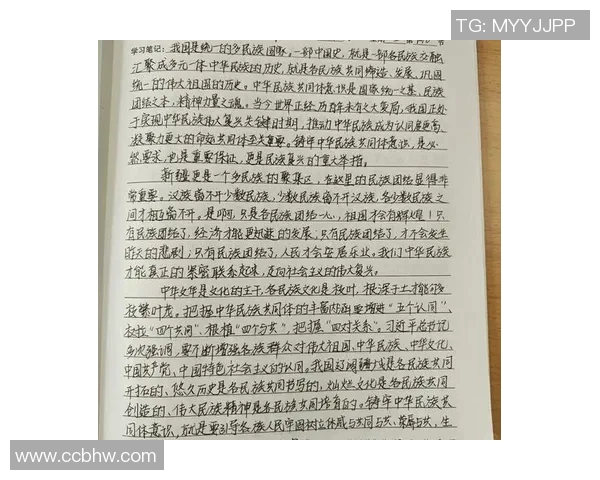 TG: MYYJJPP
学习笔记：我国是统一的多民族国家。一部中国史，就是一部各民族交融
汇聚成多元一体中华民族的历史，就是各民族共同缔造、发展、巩固
统一的伟大祖国的历史。中华民族共同体意识是国家统一之基、民族
团结之本、精神力量之魂。当今世界正经历百年未有之大变局，我国正处
于实现中华民族伟大复兴关键时期，推动中华民族成为认同度更高、
凝聚力更大的命运共同体至关重要。铸牢中华民族共同体意识，是必
然要求，也是重要保证，更是民族复兴的重大举措。
新疆更是一个多民族的聚集区，在这里的民族团结显得非
常重要。汉族离不开少数民族，少数民族离不开汉族，各少数民族之
间才相互离不开。是啊，只是各民族团结一心，祖国才会有辉煌！只
有民族团结了，经济才能更迅速的发展；只有民族团结了，才不会发生
昨天的悲剧；只有民族团结了，人民才会安居乐业。我们中华民族
才能真正的紧密联系起来，走向社会主义的伟大复兴。
中华文华是文化的主干，各民族文化是枝叶，根深干土才能够
枝繁叶茂。把握中华民族共同体的丰富内涵要增进“五个认同”、
树立“四个共同”、根植“四个与共”，把握“四对关系”。习近平总书记
多次强调，要不断增强各族群众对伟大祖国、中华民族、中华文化、
中国共产党、中国特色社会主义的认同。我国辽阔疆域是各民族共同
开拓的、悠久历史是各民族共同书写的、灿烂文化是各民族共同
创造的、伟大民族精神是各民族共同培育的。铸牢中华民族共
同体意识，就是要引导各族人民牢固树立休戚与共、荣辱与共、生
www.ccbhw.com